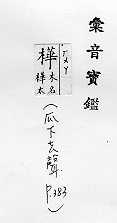 彙音寶鑑
樺
木名
樺太
(瓜下去聲 P.383)